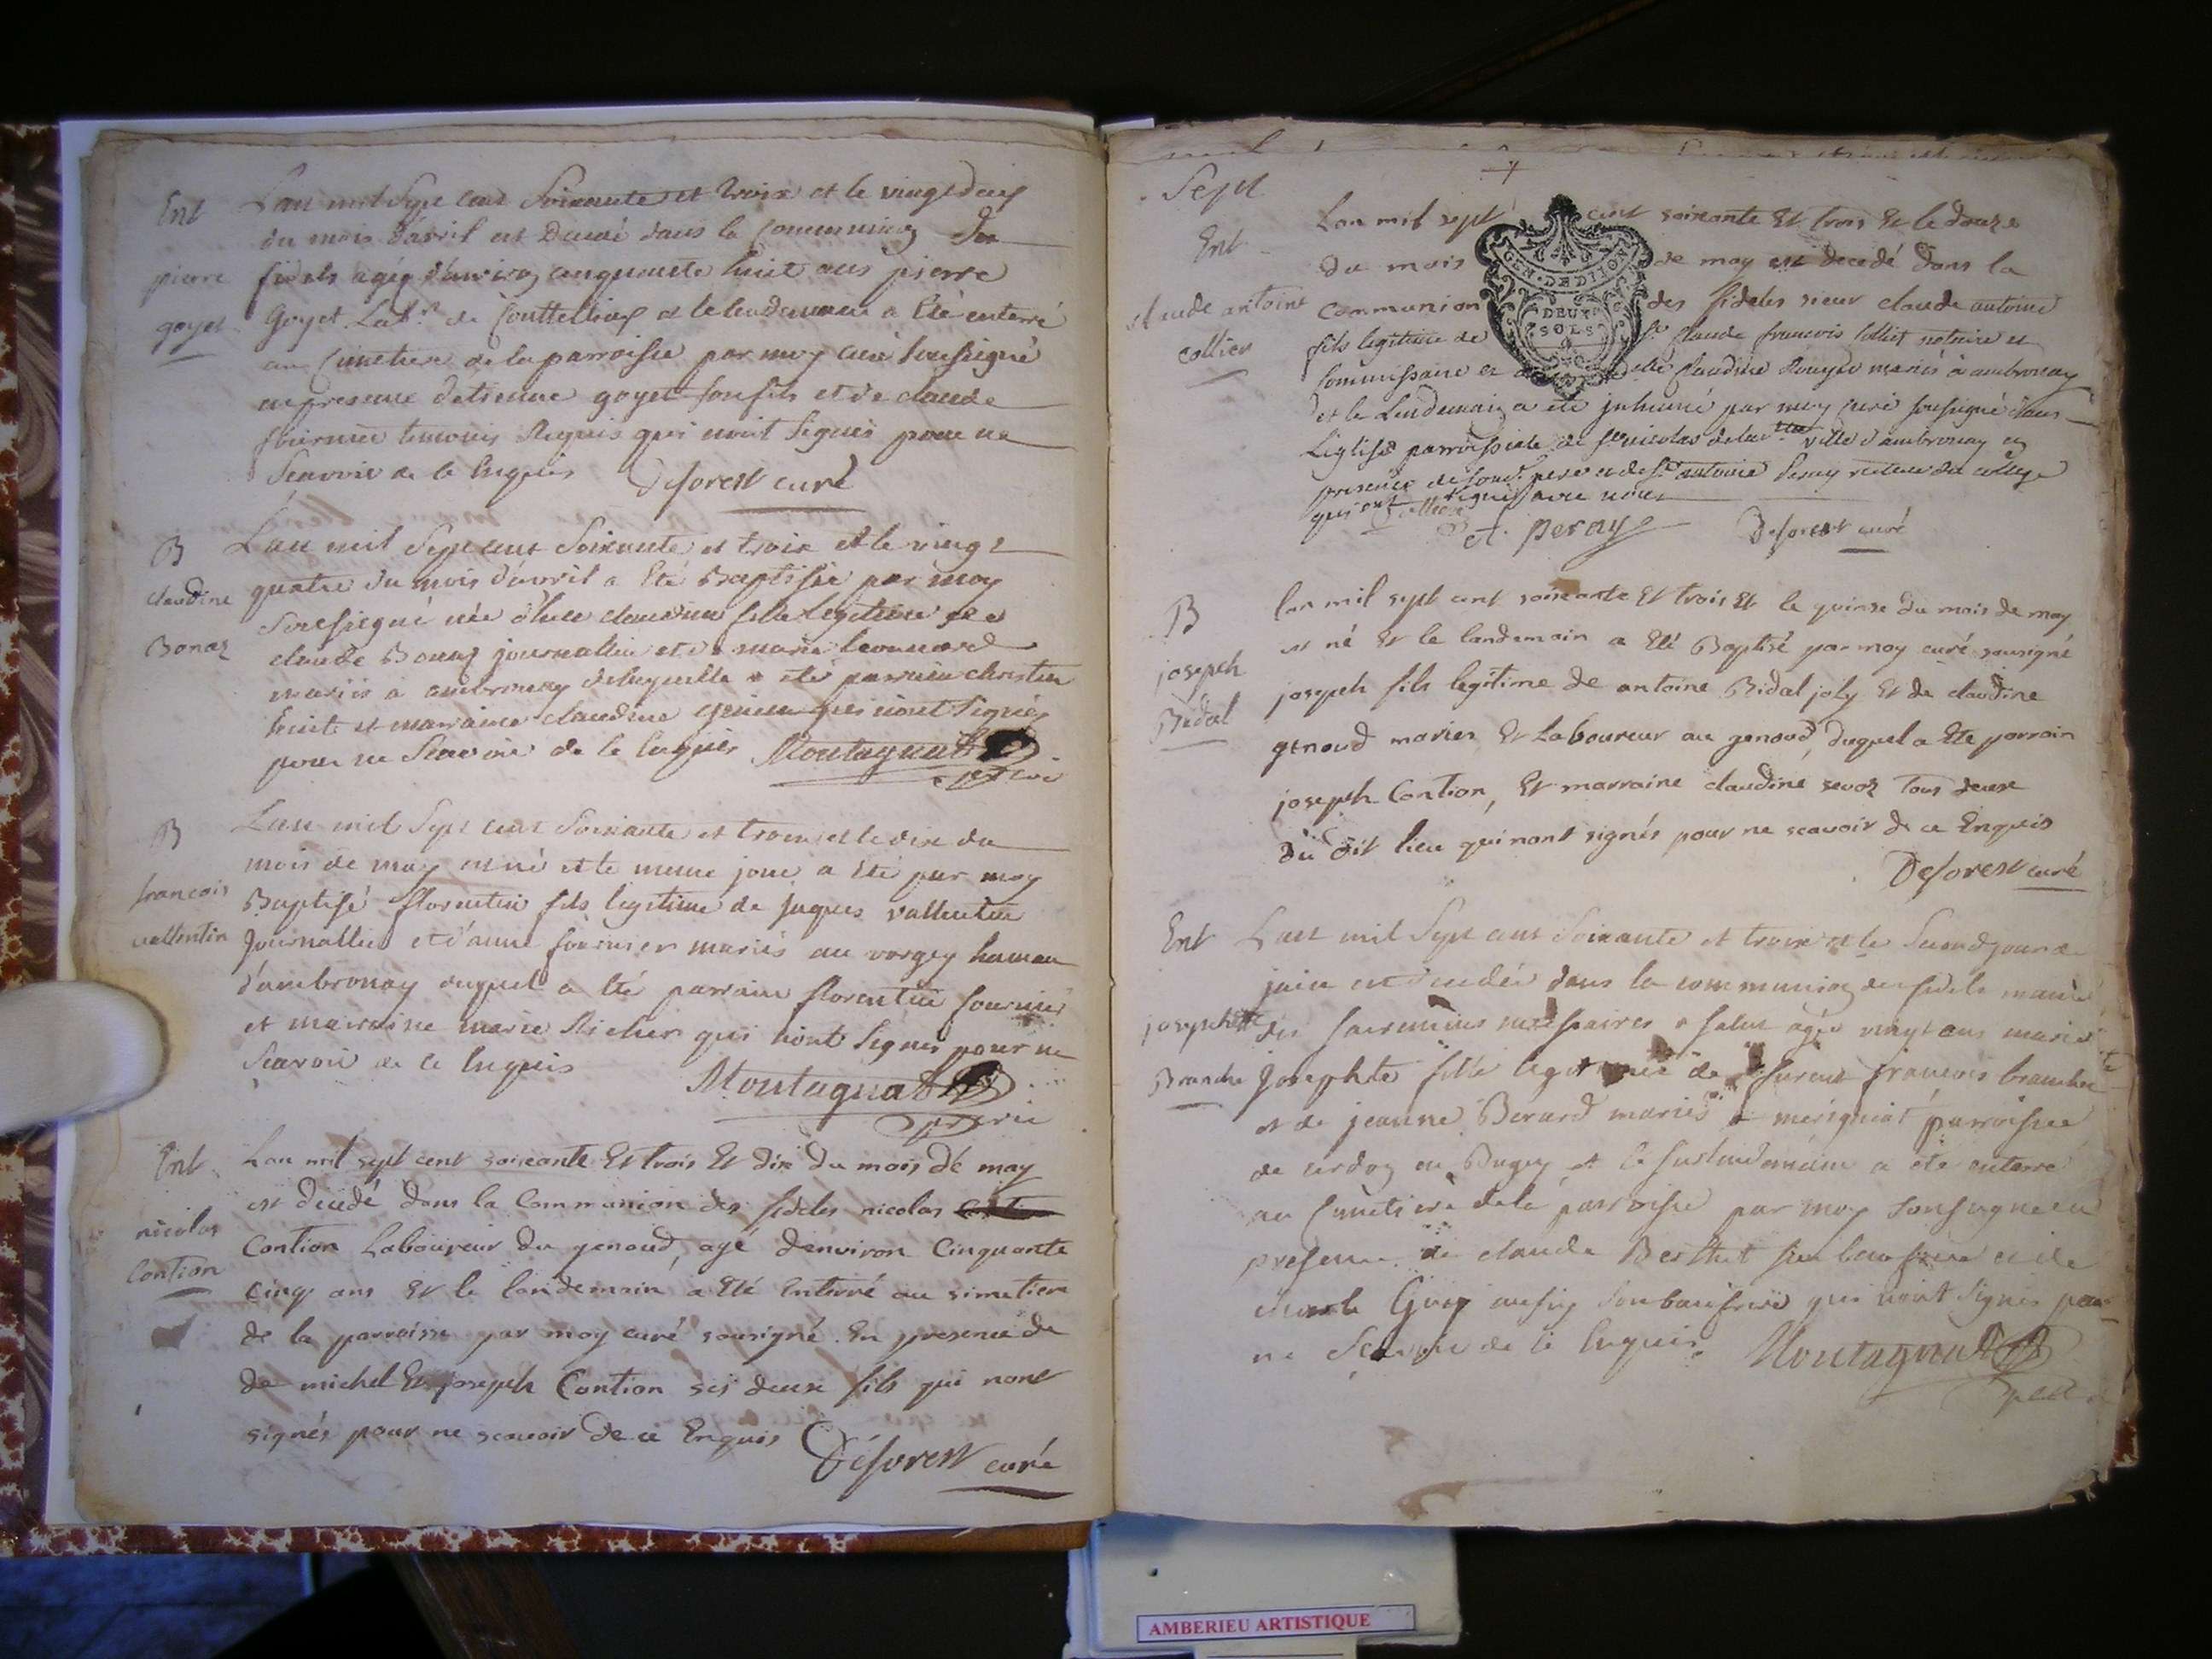 Ent
pierre
goyet
Lan mil Sept cent Soixante et trois et le vingt deux
du mois davril est Decedé dans la Communion des
fidels agée denviron cinquante huit ans pierre
Goyet Labr. de Couttellieux et le lendemain a Eté enterré
au Cimetiere de la parroisse par moy curé soussigné
en presence detienne goyet son fils et de claude
fournier temoins Requis qui nont Signés pour ne
Scavoir de ce Enquis Deforest curé
B
claudine
Bonaz
Lan mil Sept cent Soixante et trois et le vingt
quatre du mois davvril a Eté Baptisée par moy
Soussigné née claudine fille legitime de
claude Bonaz journallier et de marie leonnard
mariés à ambronay delaquelle a eté parrain christin
huit et marraine claudine qui nont Signés
pour ne Scavoir de ce Enquis Montagnat
B
francois
vallentin
Lan mil Sept cent Soixante et trois et le dix du
mois de may est né et le meme jour a Eté par moy
Baptisé florentin fils legitime de jaques vallentin
Journallier et d'anne fournier mariés au vorgey hameau
d'ambronay duquel a Eté parrain florentin fournier
et marraine marie Richer qui nont Signés pour ne
Scavoir de ce Enquis
Montagnat
Ent
nicolas
Contion
Lan mil sept cent soixante Et trois Et dix du mois de may
est decedé dans la Communion des fideles nicolas
Contion Laboureur du genoud, agé denviron Cinquante
Cinq ans Et le landemain a Eté Enterré au simetiere
de la parroisse par moy curé sousigné En presence de
de michel Et joseph Contion ses deux fils qui nont
signés pour ne scavoir de ce Enquis
Deforest curé
Sept
Ent
claude antoine
collier
Lan mil sept cent soixante Et trois Et le douze
du mois de may est decedé dans la
Communion des fideles sieur claude antoine
fils legitime de Sr. Claude francois Colliet notaire et
Commissaire et de dlle Claudine Rouyer mariés à ambronay
et le Lendemain a eté inhumé par moy curé sousigné dans
L'eglise parroissiale de St nicolas de la ville d'ambronay en
presence de soud. pere et de Sr antoine Peray recteur du college
qui ont signé avec nous
GEN. DE DIJON
DEUX
SOLS
Collier
A. Peray Deforest curé
B
joseph
Bidal
Lan mil sept cent soixante Et trois Et le quinze du mois de may
est né Et le landemain a Eté Baptisé par moy curé sousigné
joseph fils legitime de antoine Bidal joly Et de claudine
genoud mariés Et Laboureur au genoud, duquel a Eté parrain
joseph Contion, Et marraine claudine sevoz Tous deux
du dit lieu qui nont signés pour ne scavoir de ce Enquis
Deforest curé
Ent
josephte
Branche
Lan mil Sept cent Soixante et trois et le Second jour de
juin est decedée dans la communion des fidels munie
des Sacremens necessaires a salut agée vingt ans marie
Josephte fille legitimee de francois branche
et de jeanne Berard mariés a merignat parroisse
de cerdon en Bugey et le surlendemain a eté enterrée
au Cimetiere de la parroisse par moy Sousigné en
presence de claude Berthet son beaufrere et de
Guy aussy Son baufrere qui nont Signés pour
ne Scavoir de ce Enquis Montagnat
AMBERIEU ARTISTIQUE